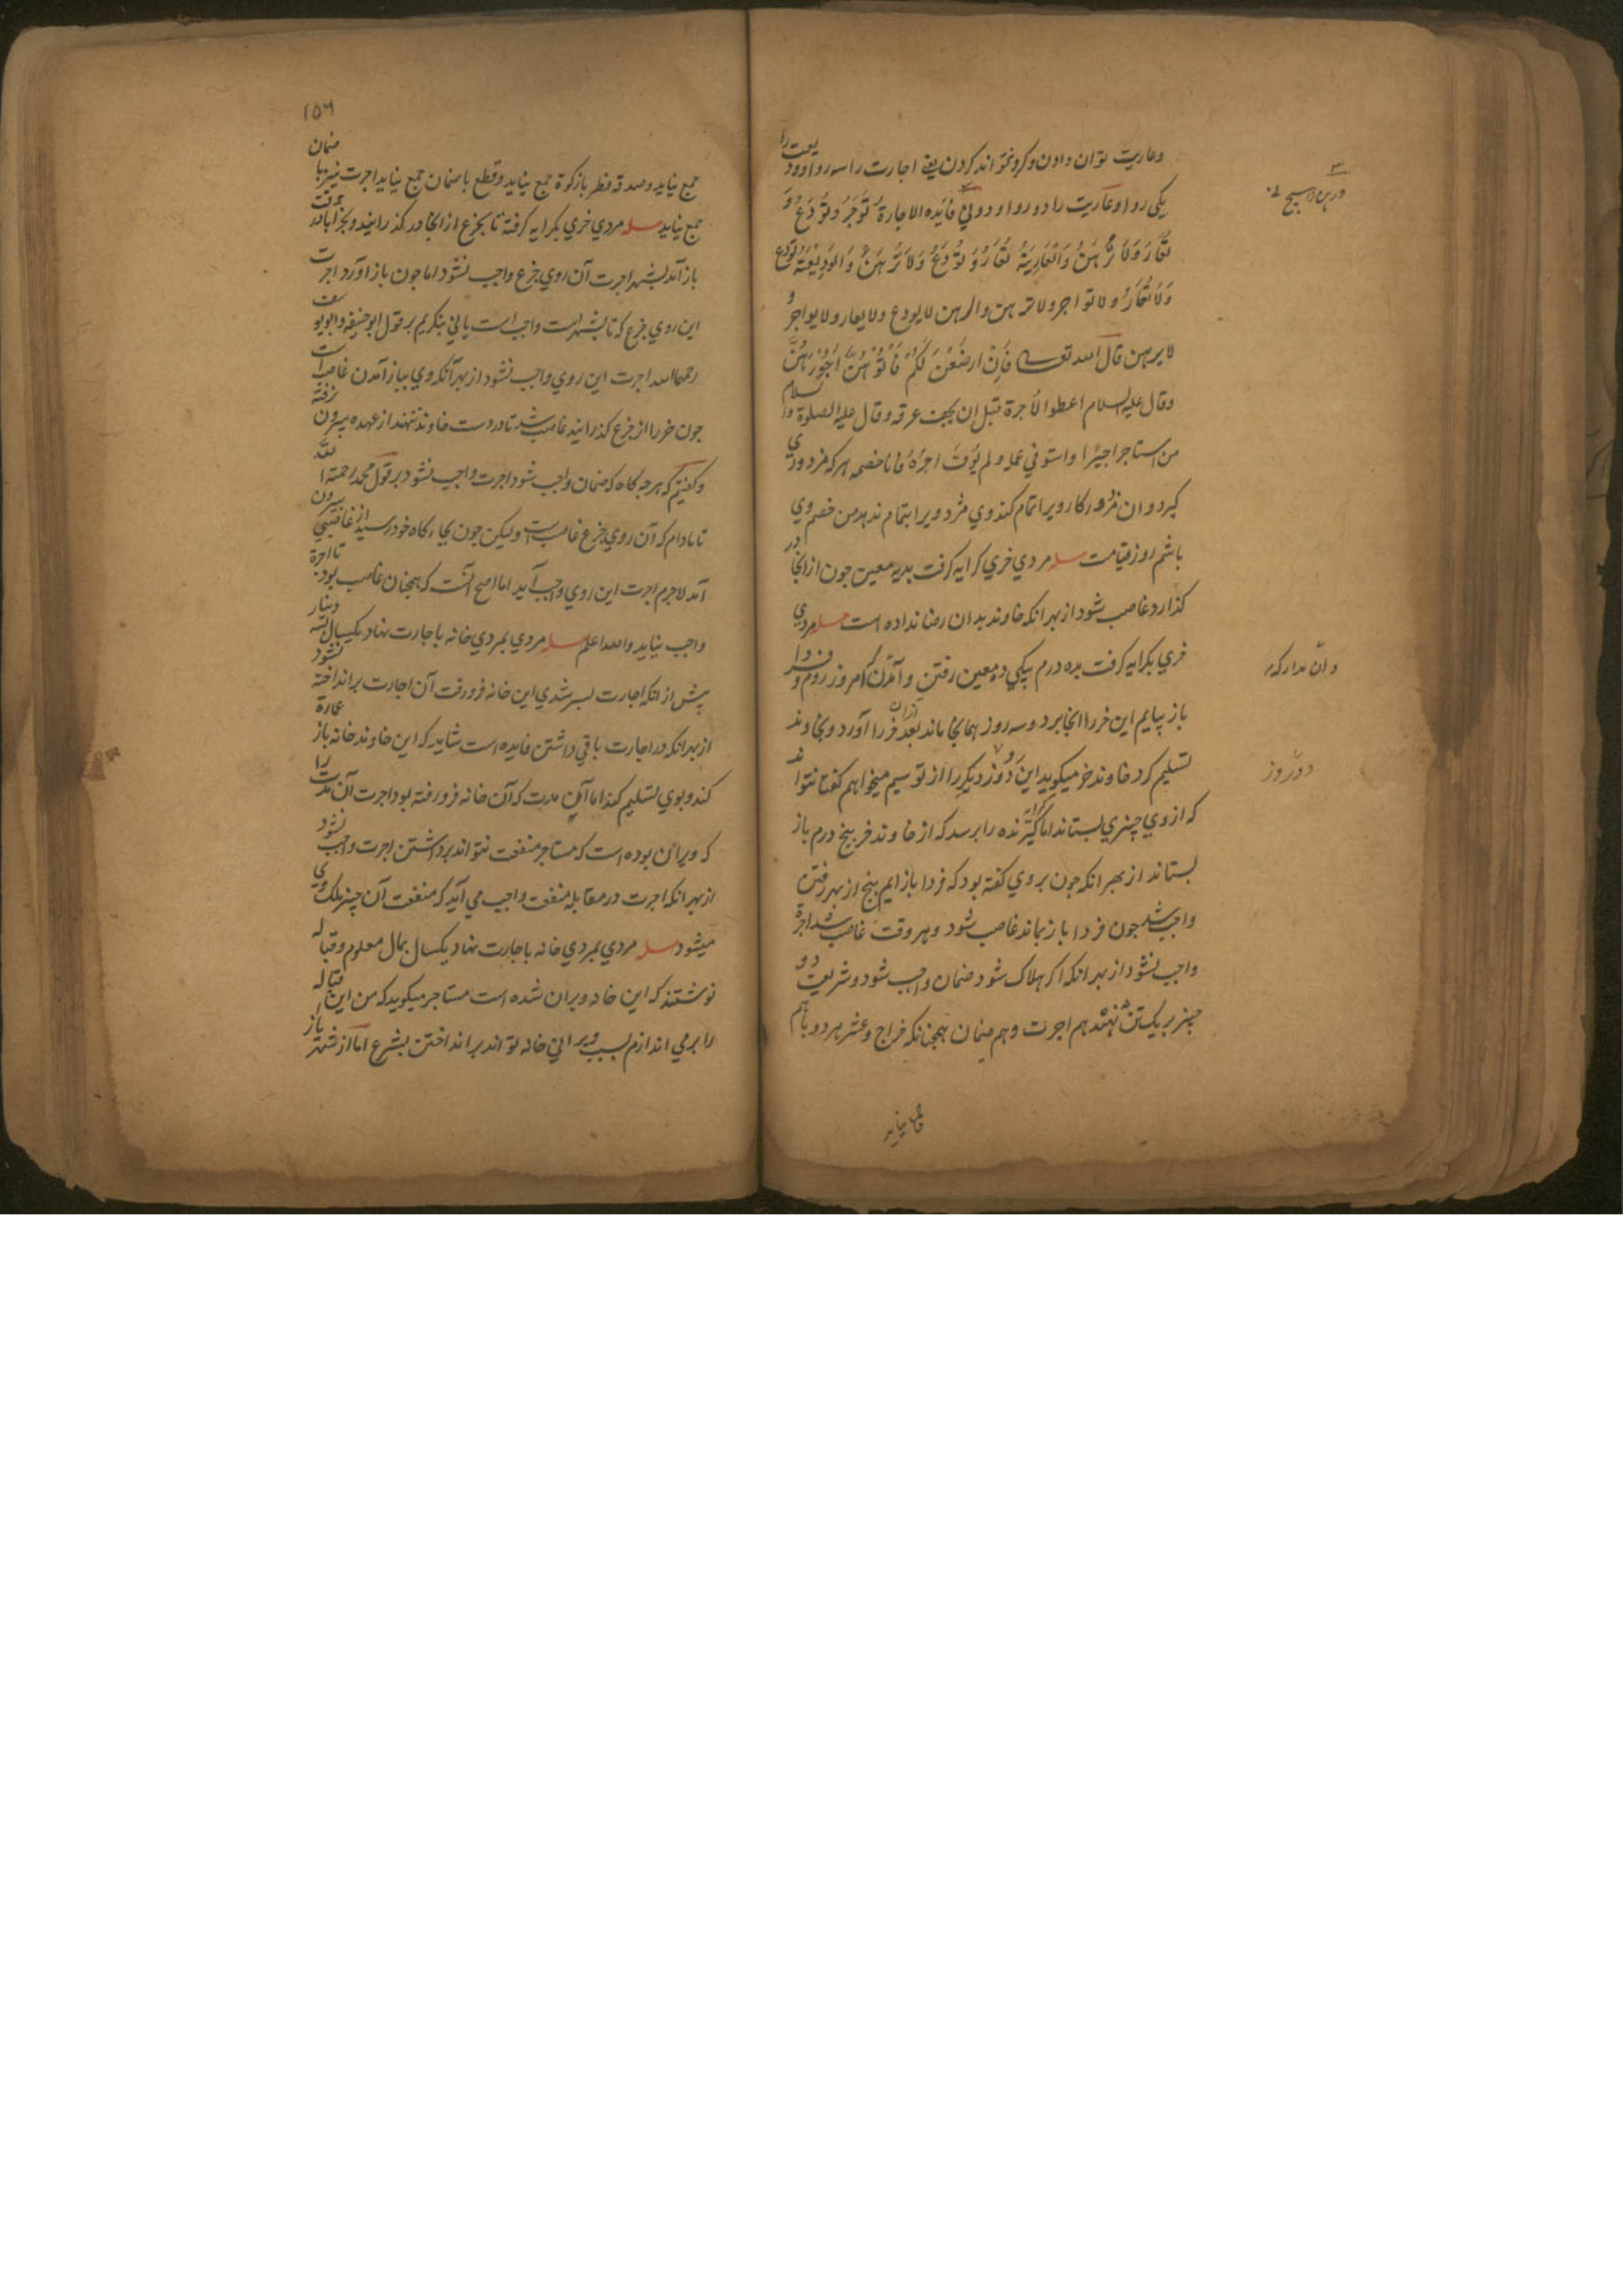 وعاریت توان دادن و کرو نتواند کردن یعنی اجارت را سه روا و ودیعت را
یکی روا و عاریت را دو روا و دو ولی فایده الاجارة تُوَجَر و تُودَعُ وَ
تُعَارُ وَلَا تُرْهَنُ وَالْعَارِیَةُ تُعَارُ وَ تُودَعُ وَلَا تُرْهَنُ وَالْوَدِیْعَة تُودَعُ
وَلَا تُعَارُ ولا تواجر ولا ترهن والرهن لا یودع ولا یعار ولا یواجر و
لا یرهن قال الله تعالی فَاِنْ ارضَعْنَ لَکُمْ فَاٰتُوْهُنَّ اُجُوْرَهُنَّ
وقال علیه السلام اعطوا الأجرة قبل ان یجف عرقه وقال علیه الصلوة والسلام
من استاجر اجیرًا واستوفی عمله ولم یُوْتَ اجرُهُ فانا خصمه هرکه مزدوری
کیرد و ان مزدور کار ویرا تمام کند وی مزد ویرا بتمام ندهد من خصم وی
باشم روز قیامت مسله مردی خری کرایه کرفت بدیه معین جون از انجا در
کذارد غاصب شود از بهر انکه خاوند بدان رضا نداده است مسله مردی
خری بکرایه کرفت بده درم بیکی ده معین رفتن و آمدن که امروز روم و فردا
باز بیایم این خر را انجا برد و سه روز همانجا ماند بعد ازان خر را آورد و بخاوند
تسلیم کرد خاوند خر میکوید این دو روز دیکر را از تو سیم میخواهم کفتا نتواند
که ازوی چیزی بستاند اما کرایه کیرنده را برسد که از خاوند خر پنج درم باز
بستاند از بهر انکه جون بروی کفته بود که فردا باز ایم پنج از بهر رفتن
واجب شد جون فردا باز نماند غاصب شود و هر وقت غاصب شد اجرة
واجب نشود از بهر انکه اکر هلاک شود ضمان واجب شود و شریعت دو
چیز بر یک تن ننهد هم اجرت و هم ضمان همچنانکه خراج و عشر هر دو باهم
دو روز
۱۵۶
جمع نیاید و صدقه فطر با زکوة جمع نیاید و قطع با ضمان جمع نیاید اجرت نیز با ضمان
جمع نیاید مسله مردی خری بکرایه کرفته تا بخرع از انجا در کذرانید و بخرآباد رفت
باز آمد بشهر اجرت آن روی خرع واجب نشود اما جون باز آورد اجرت
این روی خرع که تا بشهر است واجب است یا نی بنکریم بر قول ابو حنیفه و ابو یوسف
رحمهما الله اجرت این روی واجب نشود از بهر آنکه وی بباز آمدن غاصب است
جون خر را از خرع کذرانید غاصب شد تا در دست خاوند ننهد از عهده بیرون نرفته
و کفتیم که هر جه کاه که ضمان واجب شود اجرت واجب نشود بر قول محمد رحمة الله
تا مادام که آن روی خرع غاصب است ولیکن جون بجایکاه خود رسید از غاصبی بیرون
آمد لاجرم اجرت این روی واجب آید اما اصح آنست که همجنان غاصب بود تا اجرة
واجب نیاید والله اعلم مسله مردی بمردی خانه باجارت نهاد یکسال بسه دینار
پیش از انکه اجارت بسر شدی این خانه فرو رفت آن اجارت بر انداخته نشود
از بهر انکه در اجارت باقی داشتن فایده است شاید که این خاوند خانه باز عمارة
کند و بوی تسلیم کند اما آن مدت که آن خانه فرو رفته بود اجرت آن مدت را
که ویران بوده است که مستاجر منفعت نتواند برداشتن اجرت واجب نشود
از بهر انکه اجرت در مقابله منفعت واجب می آید که منفعت آن چیز ملک وی
میشود مسله مردی بمردی خانه باجارت نهاد یکسال بمال معلوم و قباله
نوشتند که این خانه ویران شده است مستاجر میکوید که من این قباله
را بر می اندازم بسبب ویرانی خانه تواند بر انداختن بشرع اما از شهر باز